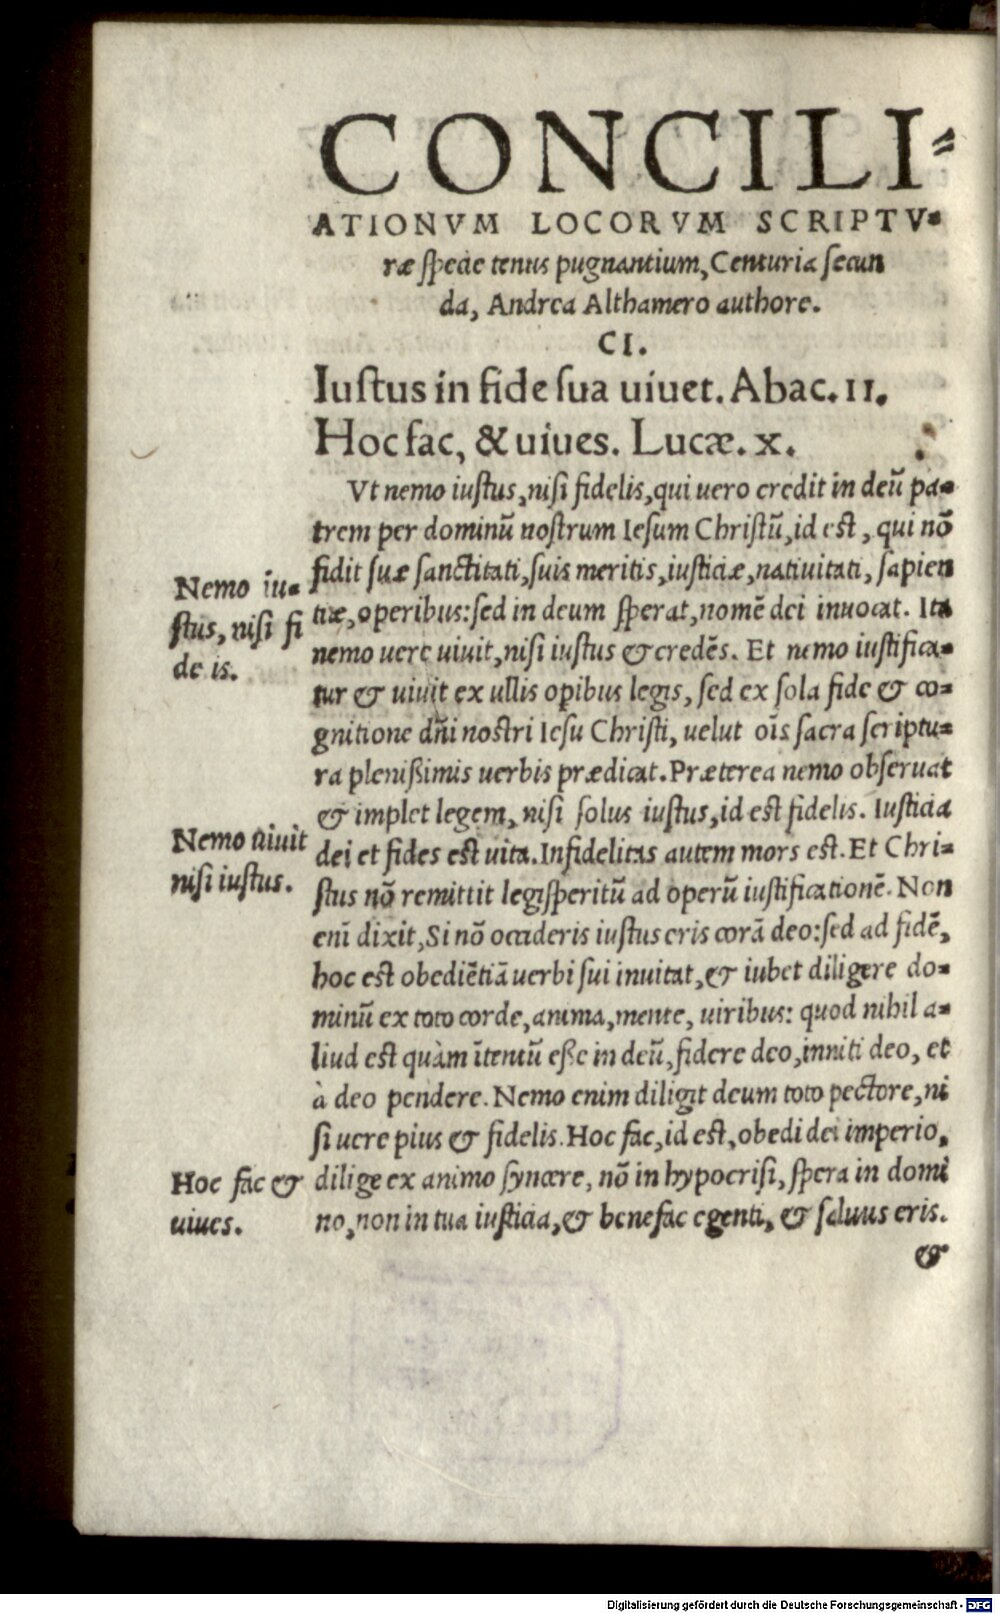 CONCILI-
ATIONVM LOCORVM SCRIPTV-
ræ ſpecie tenus pugnantium, Centuria ſecun
da, Andrea Althamero authore.
CI.
Iuſtus in fide ſua uiuet. Abac. II.
Hoc fac, & uiues. Lucæ. x.
Vt nemo iuſtus, niſi fidelis, qui uero credit in deū pa-
trem per dominū noſtrum Ieſum Chriſtū, id eſt, qui nō
fidit ſuæ ſanctitati, ſuis meritis, iuſticiæ, natiuitati, ſapien
tiæ, operibus: ſed in deum ſperat, nomē dei inuocat. Ita
nemo uere uiuit, niſi iuſtus & credēs. Et nemo iuſtifica-
tur & uiuit ex ullis opibus legis, ſed ex ſola fide & co-
gnitione dñi noſtri Ieſu Chriſti, uelut oīs ſacra ſcriptu-
ra pleniſſimis uerbis prædicat. Præterea nemo obſeruat
& implet legem, niſi ſolus iuſtus, id eſt fidelis. Iuſticia
dei et fides eſt uita. Infidelitas autem mors eſt. Et Chri-
ſtus nō remittit legiſperitū ad operū iuſtificationē. Non
enī dixit, Si nō occideris iuſtus eris corā deo: ſed ad fidē,
hoc eſt obediētiā uerbi ſui inuitat, & iubet diligere do-
minū ex toto corde, anima, mente, uiribus: quod nihil a-
liud eſt quàm ītentū eſſe in deū, fidere deo, inniti deo, et
à deo pendere. Nemo enim diligit deum toto pectore, ni
ſi uere pius & fidelis. Hoc fac, id eſt, obedi dei imperio,
dilige ex animo ſyncere, nō in hypocriſi, ſpera in domi
no, non in tua iuſticia, & benefac egenti, & ſaluus eris.
&
Nemo iu-
ſtus, niſi fi
de is.
Nemo uiuit
niſi iuſtus.
Hoc fac &
uiues.
Digitalisierung gefördert durch die Deutsche Forschungsgemeinschaft - DFG